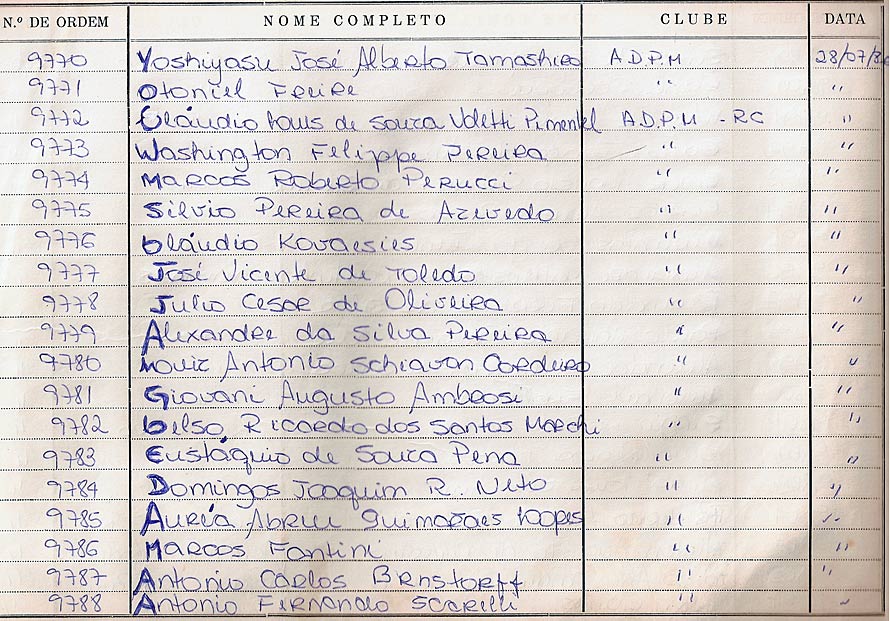 N.º DE ORDEM NOME COMPLETO CLUBE DATA
9770 Yoshiyasu José Alberto Tamashiro A.D.P.M 28/07/8
9771 Otoniel Freire " "
9772 Cláudio Louis de Souza Voletti Pimentel A.D.P.M - RC "
9773 Washington Felippe Pereira " "
9774 Marcos Roberto Perucci " "
9775 Silvio Pereira de Azevedo " "
9776 Cláudio Kovacsics " "
9777 José Vicente de Toledo " "
9778 Julio Cesar de Oliveira " "
9779 Alexandre da Silva Pereira " "
9780 Antonio Schiavon Cordeiro " "
9781 Giovani Augusto Ambrosi " "
9782 Celso Ricardo dos Santos Marchi " "
9783 Eustáquio de Souza Pena " "
9784 Domingos Joaquim R. Neto " "
9785 Auréa Abreu Guimarães Lopes " "
9786 Marcos Fantini " "
9787 Antonio Carlos Brnstorff " "
9788 Antonio Fernando Scarelli " "